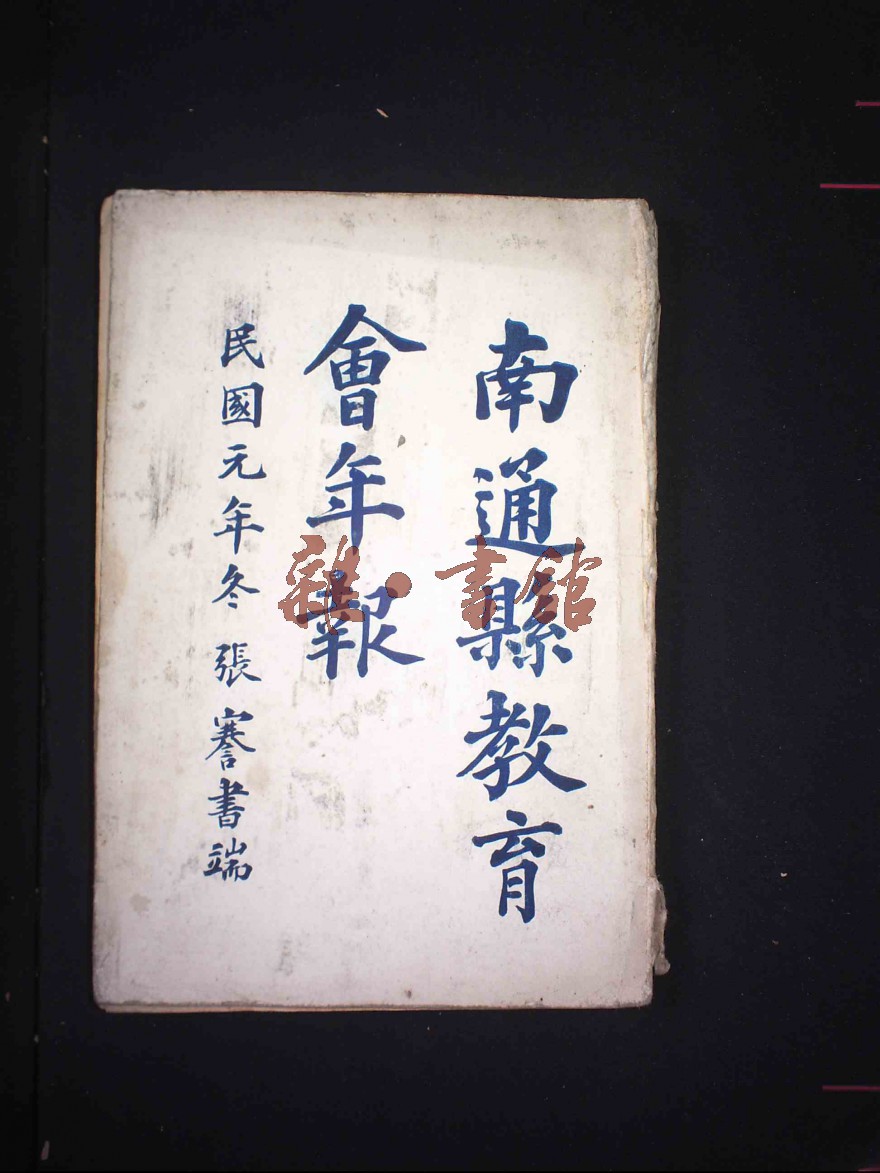 南通縣教育
會年報
民國元年冬 張謇書端
雜·書館